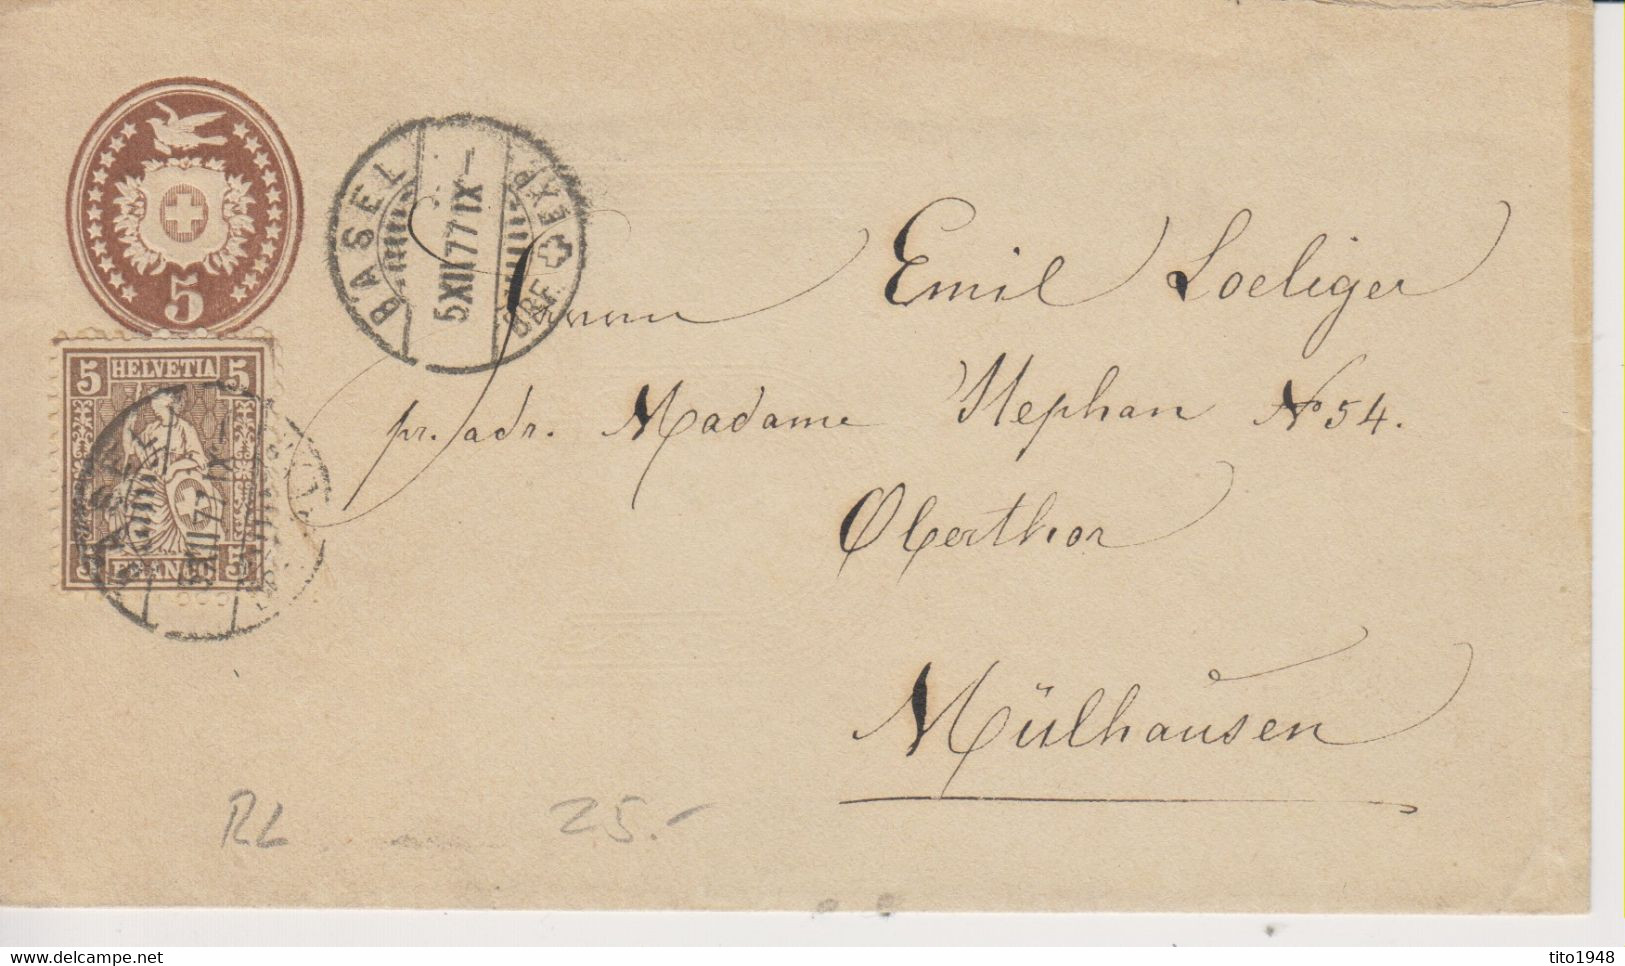 5
BASEL
5XII77 IX-
BRF. EXP.
5 HELVETIA 5
5 FRANCO 5
BASEL
5XII77 IX
Herrn Emil Loeliger
pr. adr. Madame Stephan No 54.
Oberthor
Mülhausen
RL 25.-
www.delcampe.net
tito1948